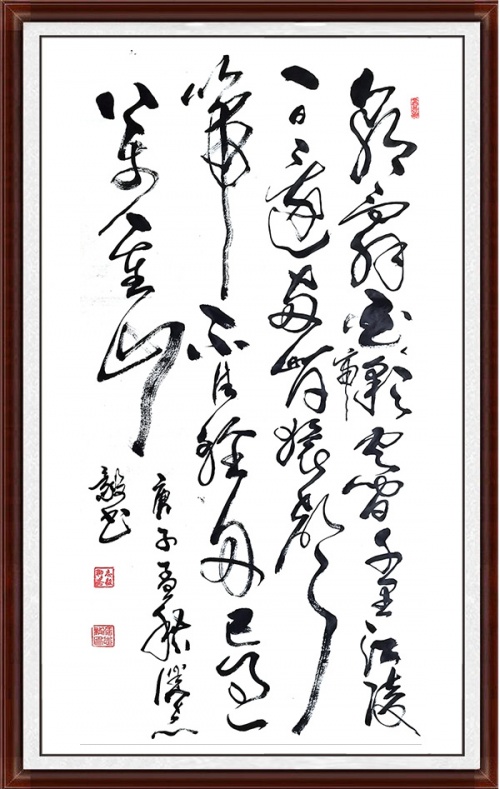 朝辭白帝彩云间千里江陵
一日還两岸猿声
啼不住轻舟已过
万重山
庚子孟秋
毅书